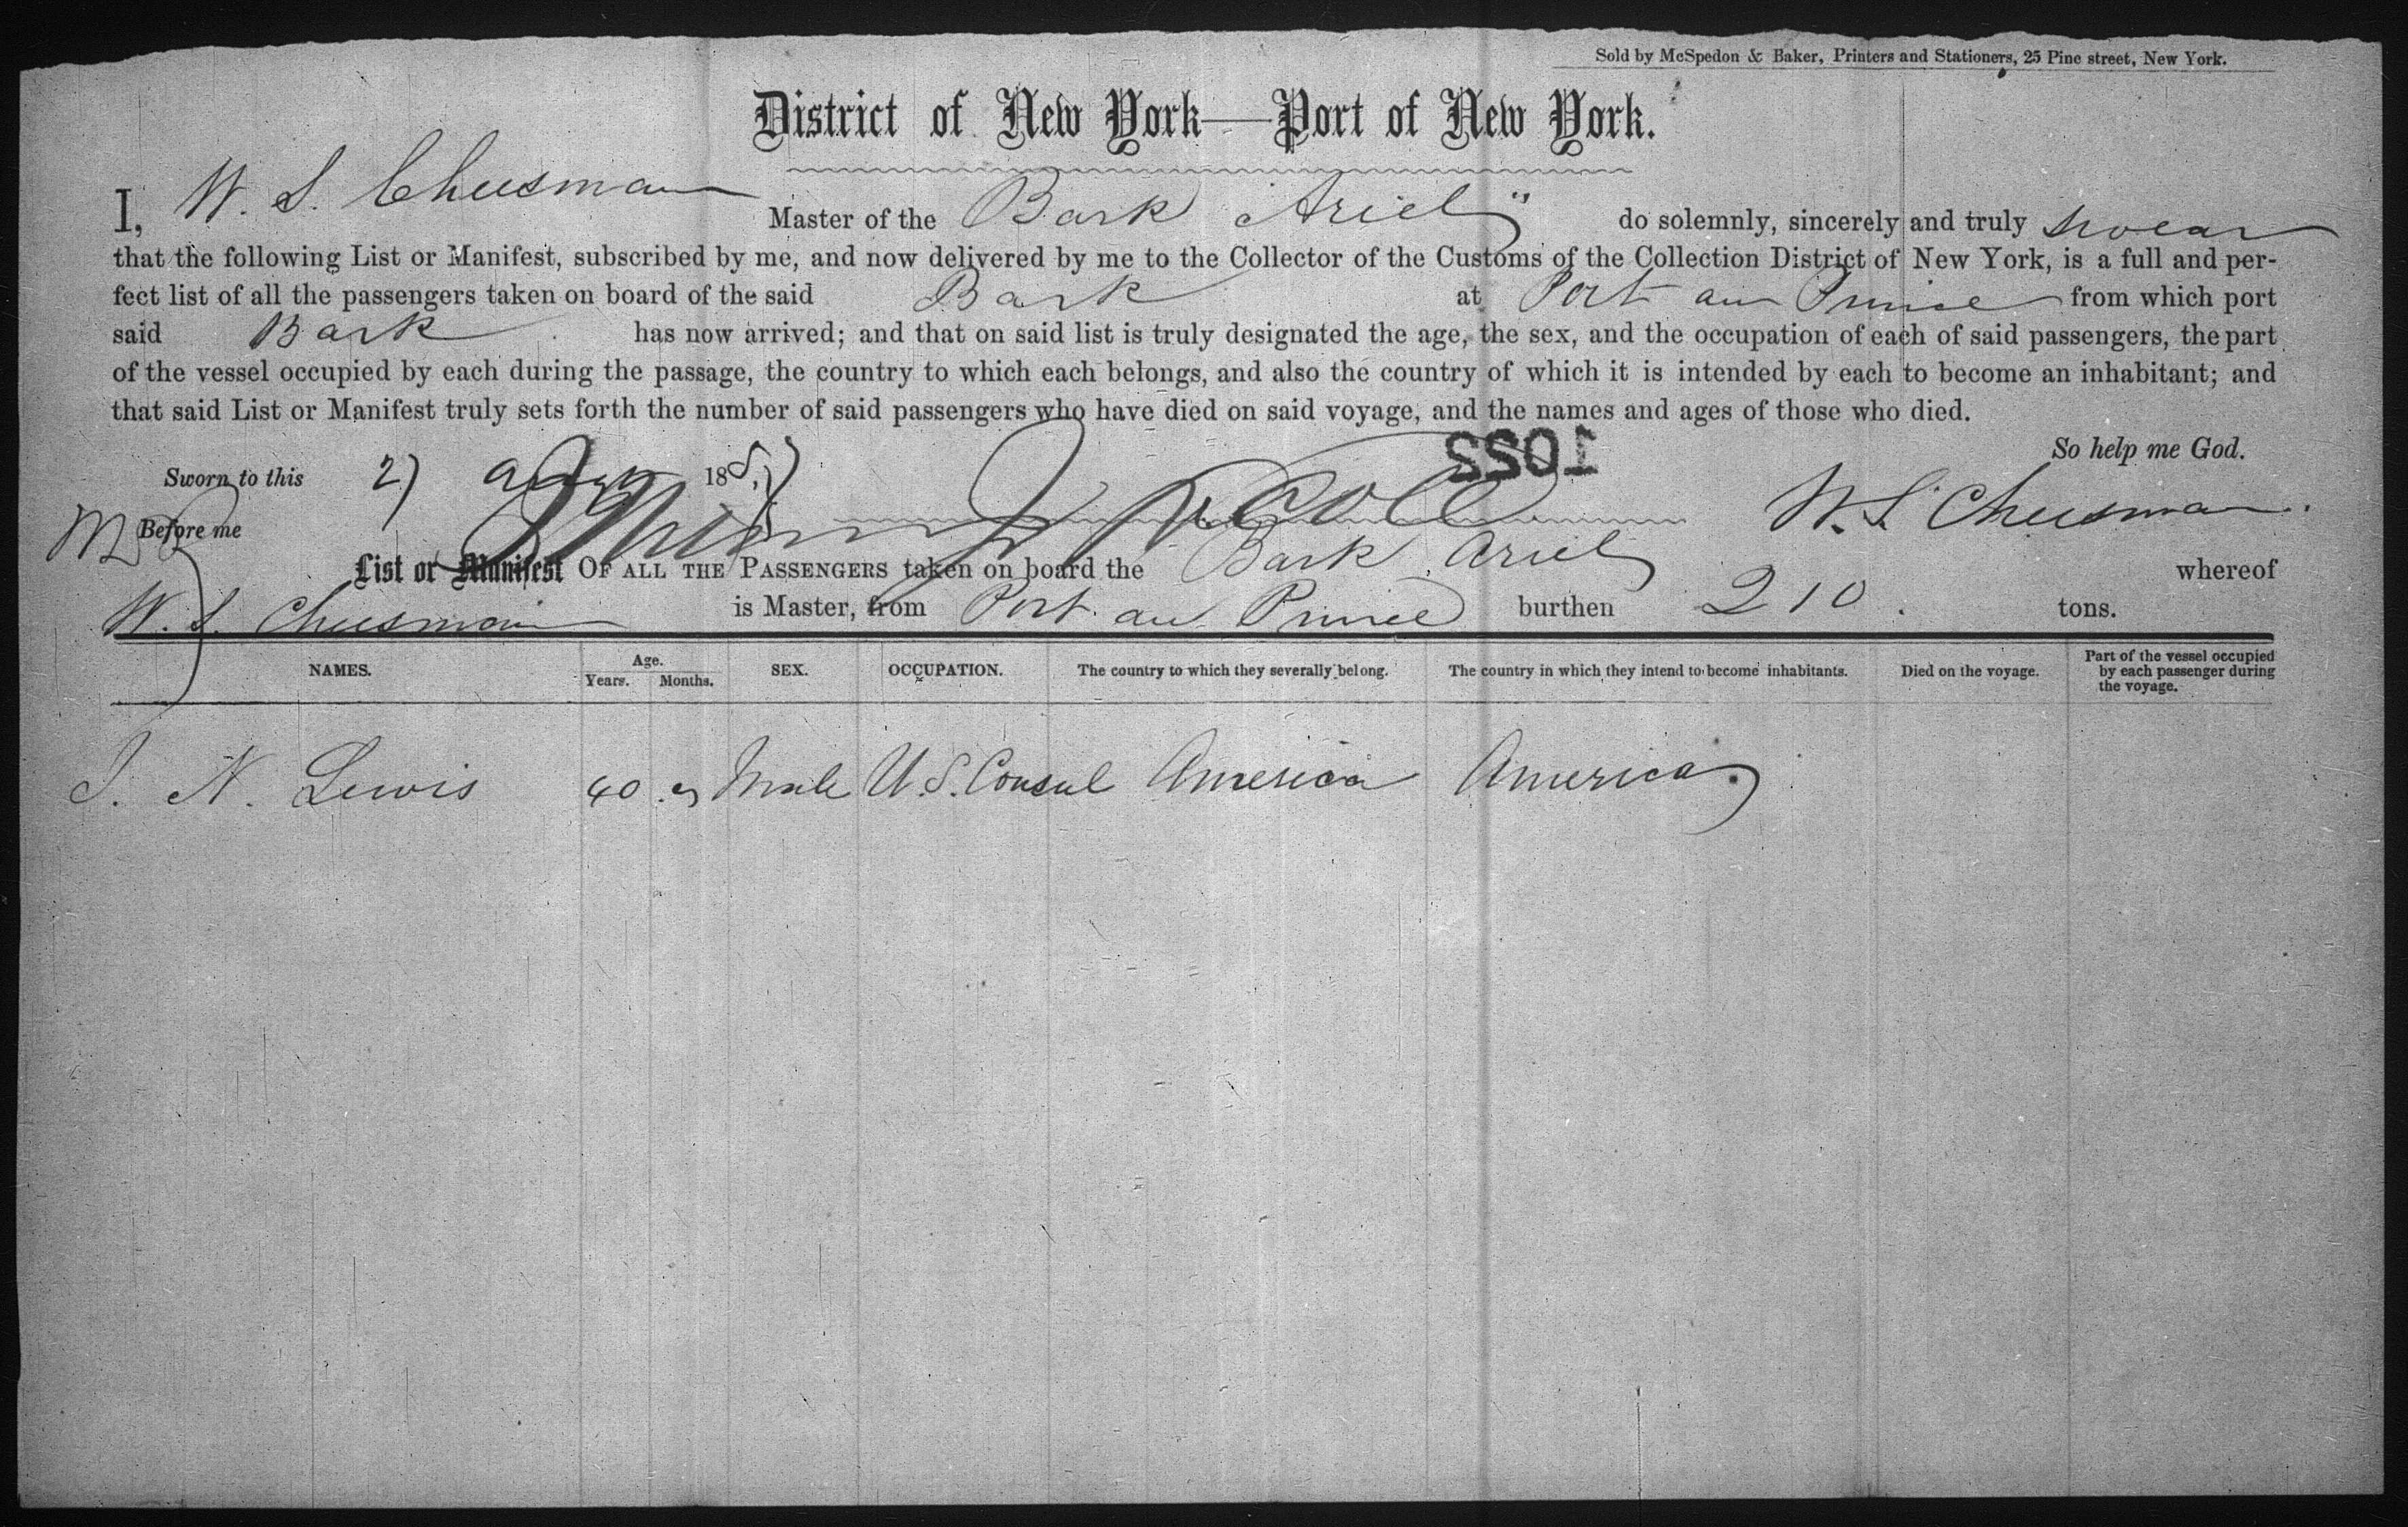 Sold by McSpedon & Baker, Printers and Stationers, 25 Pine street, New York.
District of New York—Port of New York.
I, W. S. Cheesman Master of the Bark "Ariel" do solemnly, sincerely and truly swear
that the following List or Manifest, subscribed by me, and now delivered by me to the Collector of the Customs of the Collection District of New York, is a full and per-
fect list of all the passengers taken on board of the said Bark at Port au Prince from which port
said Bark has now arrived; and that on said list is truly designated the age, the sex, and the occupation of each of said passengers, the part
of the vessel occupied by each during the passage, the country to which each belongs, and also the country of which it is intended by each to become an inhabitant; and
that said List or Manifest truly sets forth the number of said passengers who have died on said voyage, and the names and ages of those who died.
So help me God.
Sworn to this 27 185 1055
Before me W. S. Cheesman
List or Manifest OF ALL THE PASSENGERS taken on board the Bark Ariel whereof
W. S. Cheesman is Master, from Port au Prince burthen 210 tons.
NAMES. Age. Years. Months. SEX. OCCUPATION. The country to which they severally belong. The country in which they intend to become inhabitants. Died on the voyage. Part of the vessel occupied by each passenger during the voyage.
J. N. Lewis 40 Male U.S. Consul America America